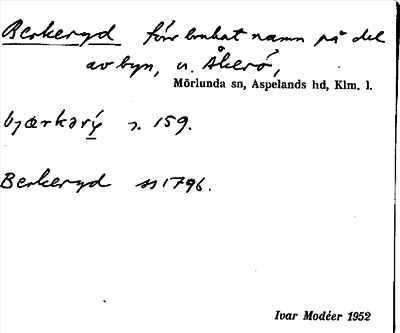 Berkeryd förr brukat namn på del
av byn, u. Åkerö,
Mörlunda sn, Aspelands hd, Klm. l.
bjærkərý s. 159.
Berkeryd 1796.
Ivar Modéer 1952